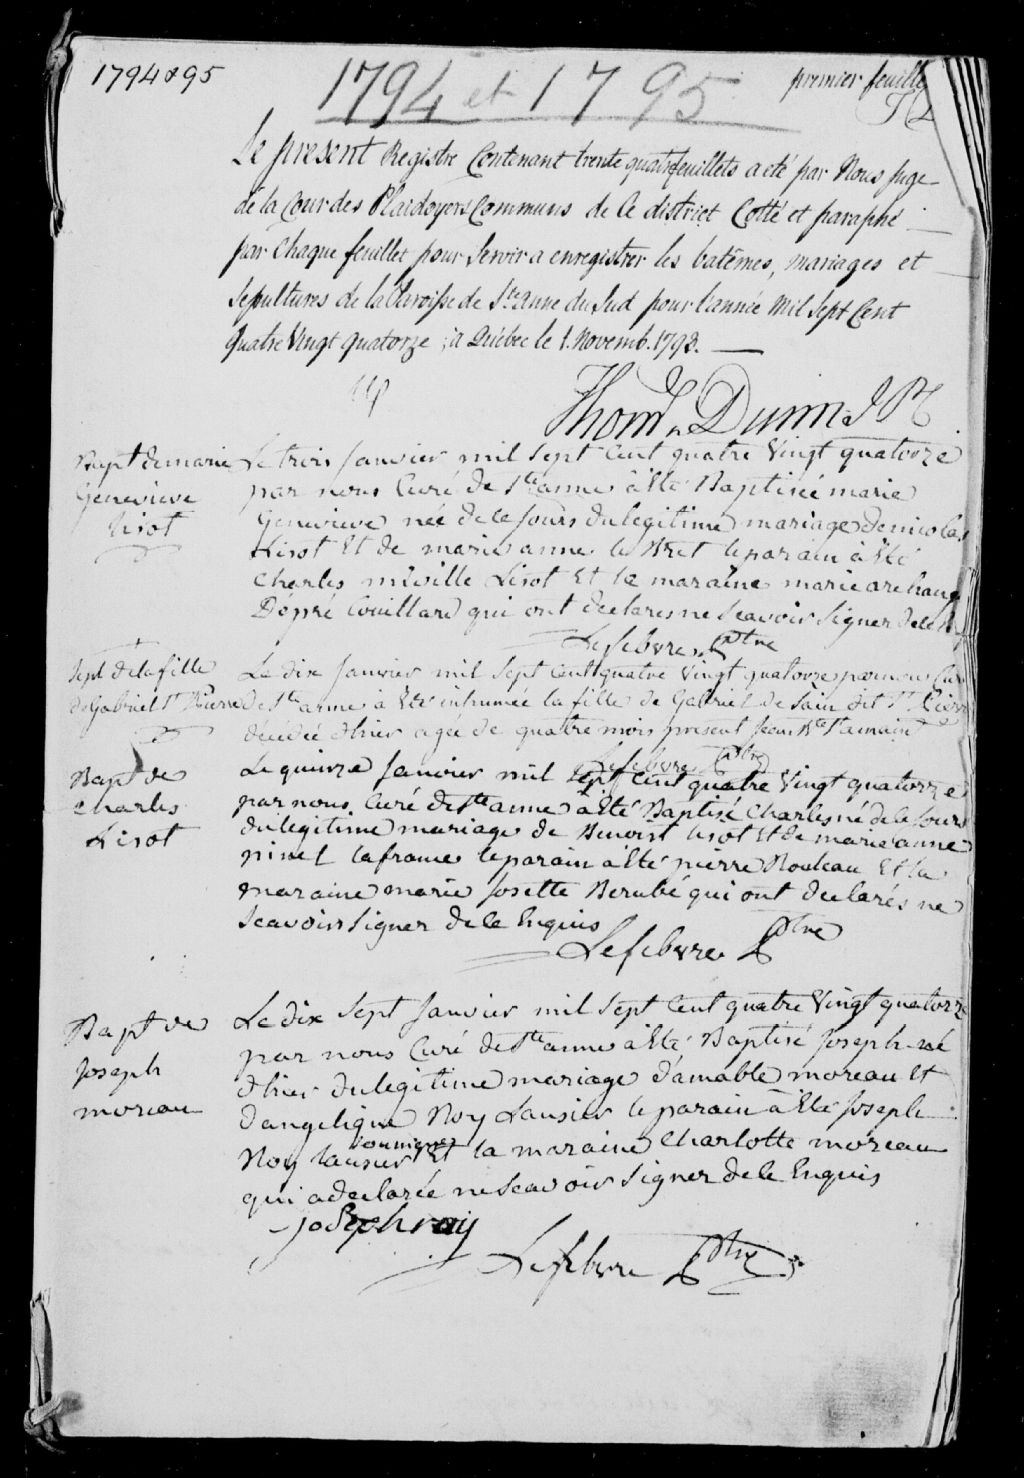 1794 & 95
1794 et 1795
premier feuille
Le present Registre Contenant trente quatre feuillets a été par Nous Juge
de la Cour des Plaidoyers Communs de Ce district Cotté et paraphé
par Chaque feuillet pour Servir a enregistrer les batêmes, mariages et
Sepultures de la Paroisse de Ste Anne du Sud pour l'année Mil Sept Cent
Quatre Vingt Quatorze ; à Québec le 1. Novemb. 1793.
Dunn
Bapt de marie
Genevieve
Lisot
Le trois Janvier mil sept Cent quatre Vingt quatorze
par nous Curé de Ste anne à Eté Baptisée marie
Genevieve née de ce Jours du legitime mariage de nicolas
Lisot Et de marie anne le Bret le parain à Eté
Charles miville Lisot Et la maraine marie archange
Dépré Couillard qui ont declares ne Scavoir Signer de ce
Lefebvre Ptre
Sepl de la fille
de Gabriel St Pierre
Le dix Janvier mil sept Cent quatre Vingt quatorze par nous Curé
de Ste anne à Eté inhumée la fille de Gabriel de Sain dit St Pierre
décédée d'hier agée de quatre mois present Jean Bte St amain
Lefebvre Ptre
Bapt de
Charles
Lisot
Le quinze Janvier mil Sept Cent quatre Vingt quatorze
par nous Curé de Ste anne à Eté Baptisé Charles né de ce Jours
du legitime mariage de Benoist Lisot Et de marie anne
pinel lafrance le parain à Eté pierre Rouleau Et la
maraine marie Josette Berubé qui ont declarés ne
Scavoir Signer de ce Enquis
Lefebvre Ptre
Bapt de
Joseph
moreau
Le dix Sept Janvier mil Sept Cent quatre Vingt quatorze
par nous Curé de Ste anne à Eté Baptisé Joseph né
d'hier du legitime mariage d'amable moreau Et
d'angelique Roy Lausier le parain à Eté Joseph
Roy lausier Et la maraine Charlotte moreau
qui a declarée ne Scavoir Signer de ce Enquis
joseph roy
Lefebvre Ptre